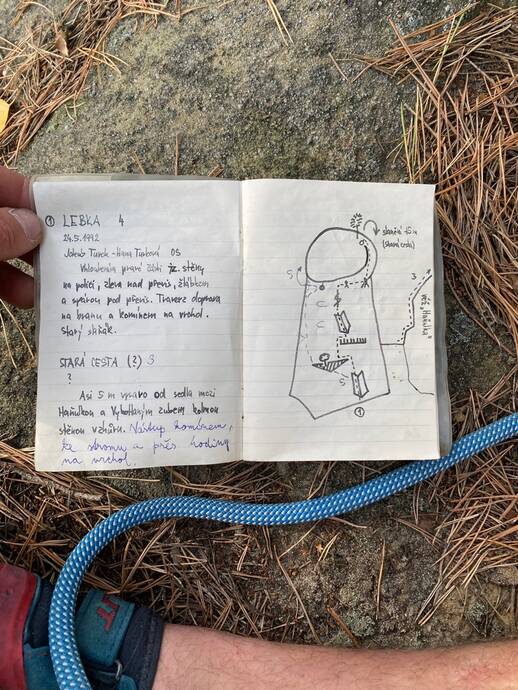 ① LEBKA 4
24.5.1992
Jakub Turek - Hana Turková OS
pravé části jz. stěny
na polici, zleva nad převis, žlábkem
a spárou pod převis. Traverz doprava
na hranu a komínem na vrchol.
Starý skřak.
STARÁ CESTA (?) 3
?
Asi 5 m vpravo od sedla mezi
Haňulkou a Vykotlaným zubem kolmou
stěnou vzhůru. Nástup komínem,
ke stromu a přes hodiny
na vrchol.
slanění 15 m
(stará cesta)
3
věž „Haňulka"
5
5
①